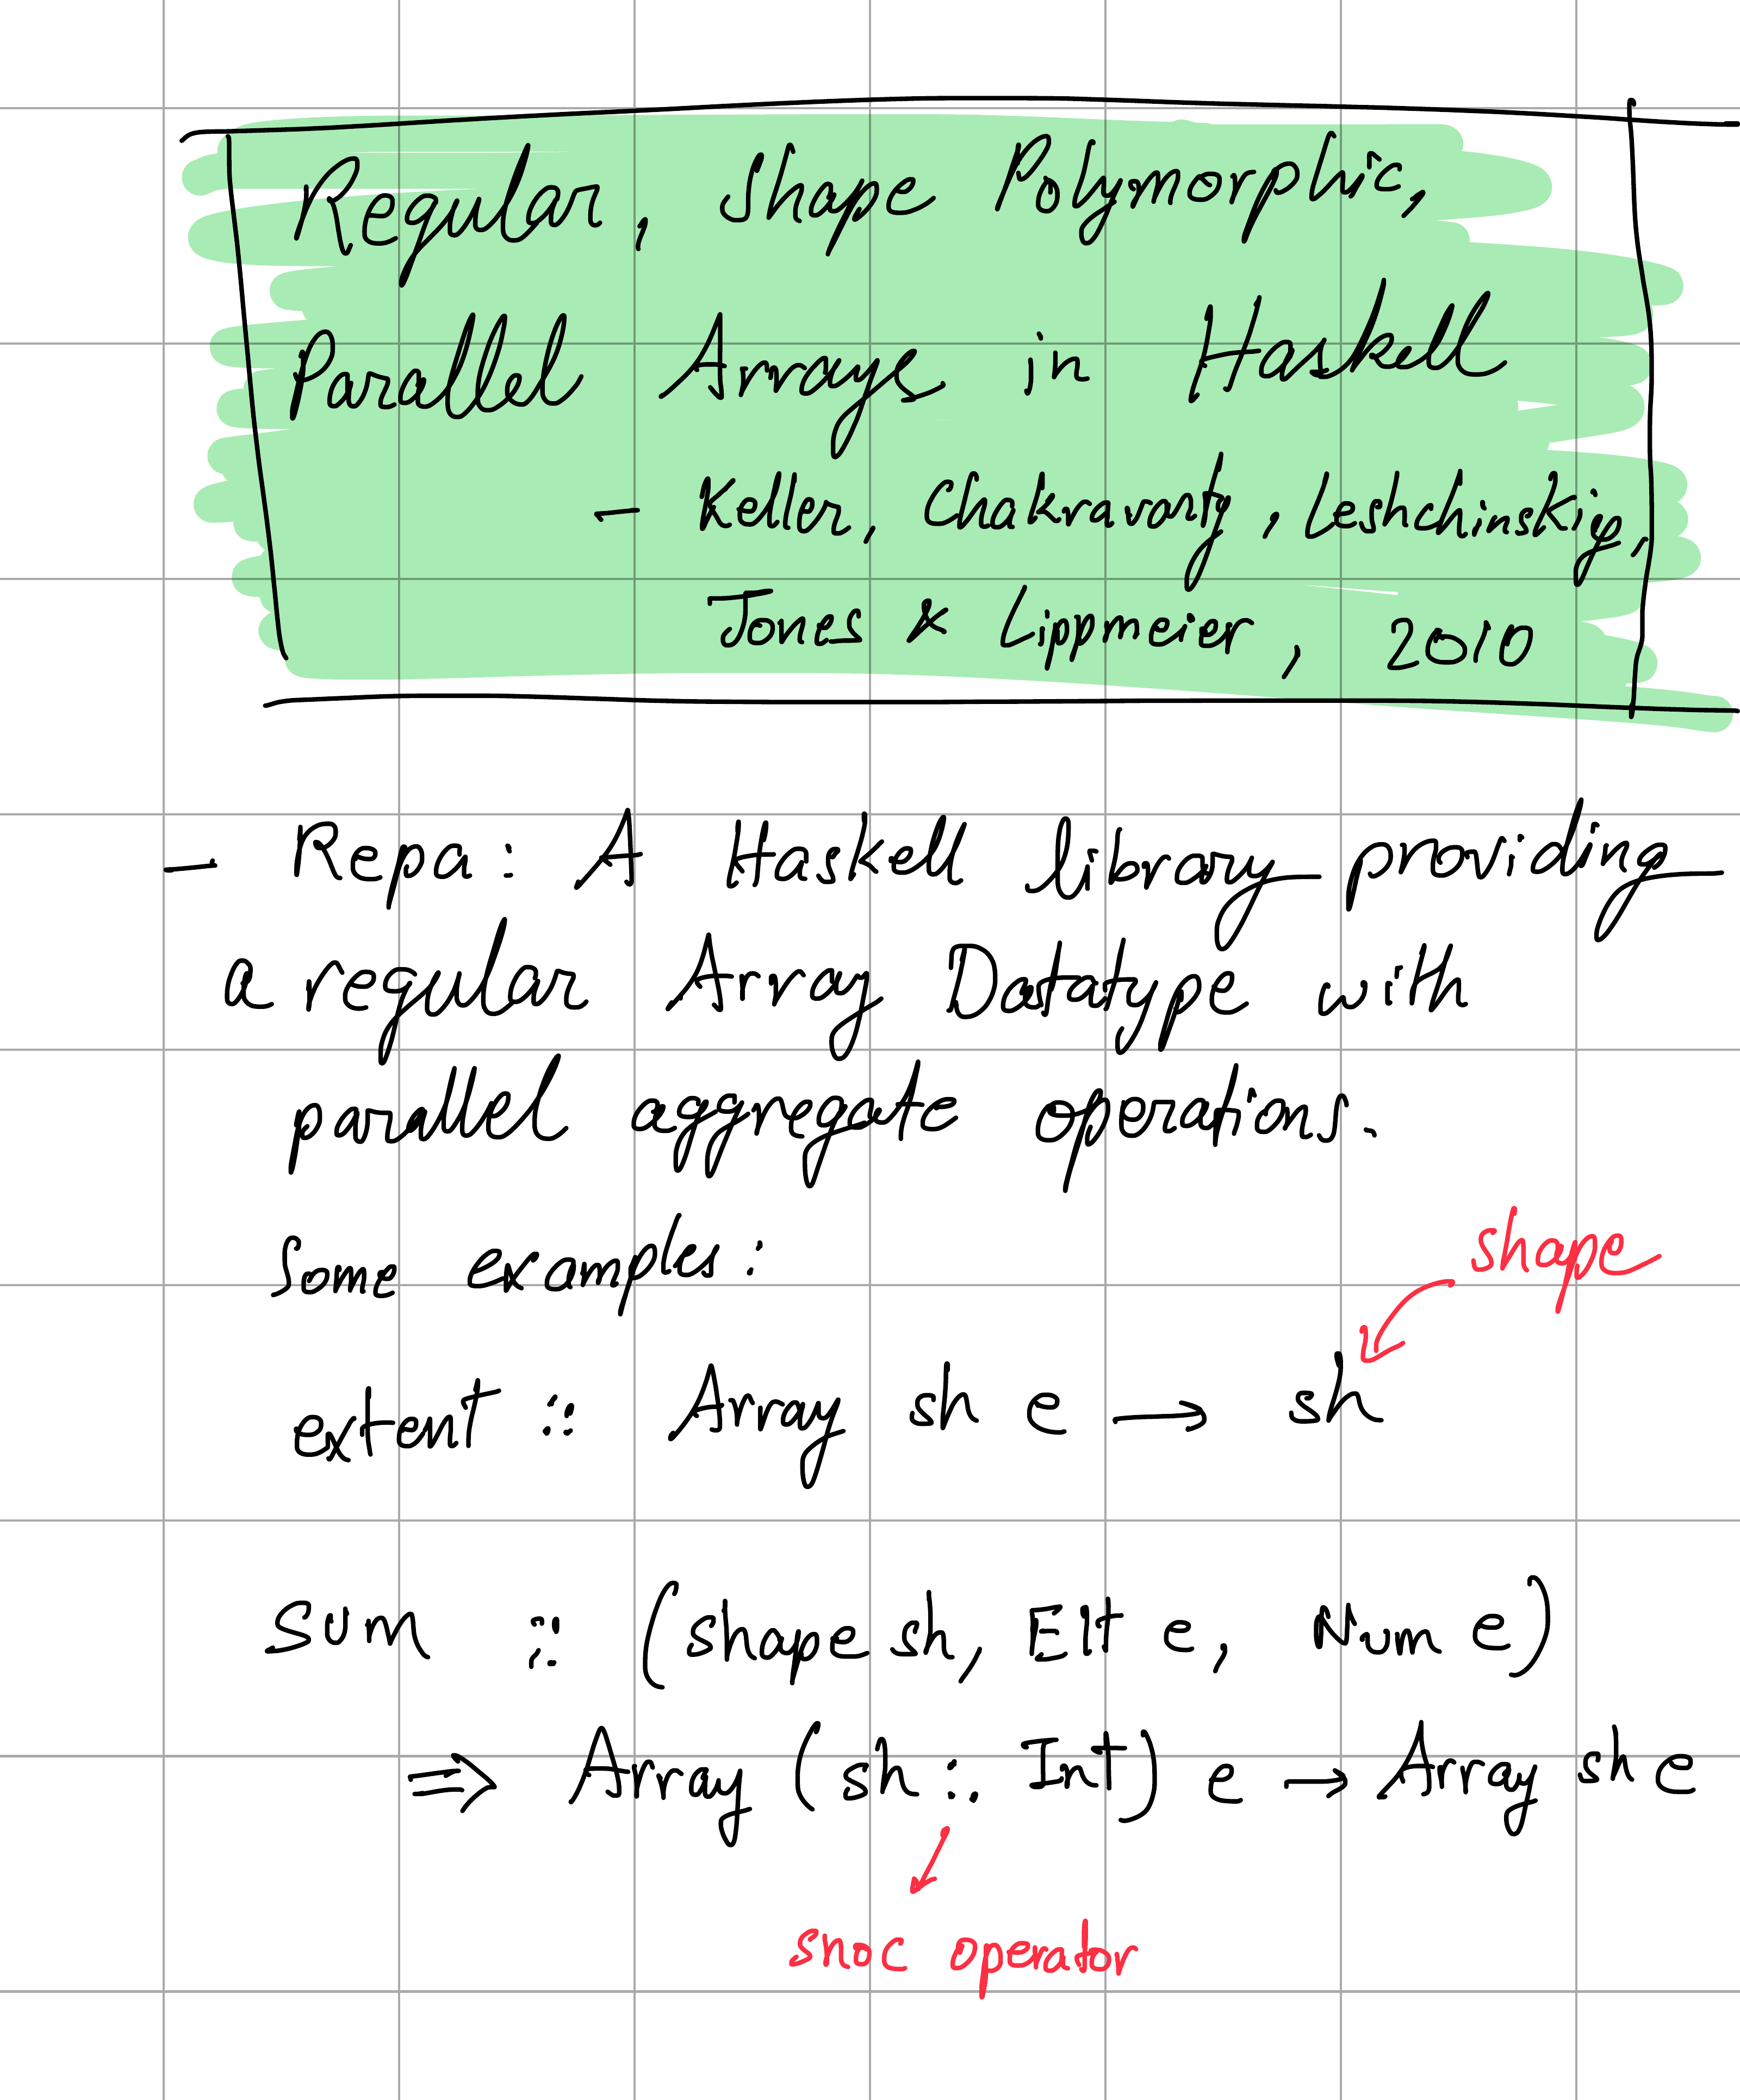 Regular, Shape Polymorphic,
Parallel Arrays in Haskell
- Keller, Chakravarty, Leshchinskiy,
Jones & Lippmeier, 2010
- Repa: A Haskell library providing
a regular Array Datatype with
parallel aggregate operations.
Some examples:
shape
extent :: Array sh e → sh
sum :: (shape sh, Elt e, Num e)
⇒ Array (sh :. Int) e → Array sh e
snoc operator